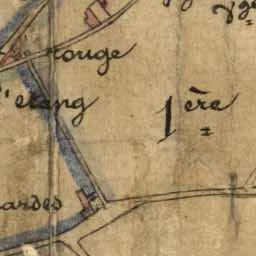 rouge
l'etang
1ère
ardes